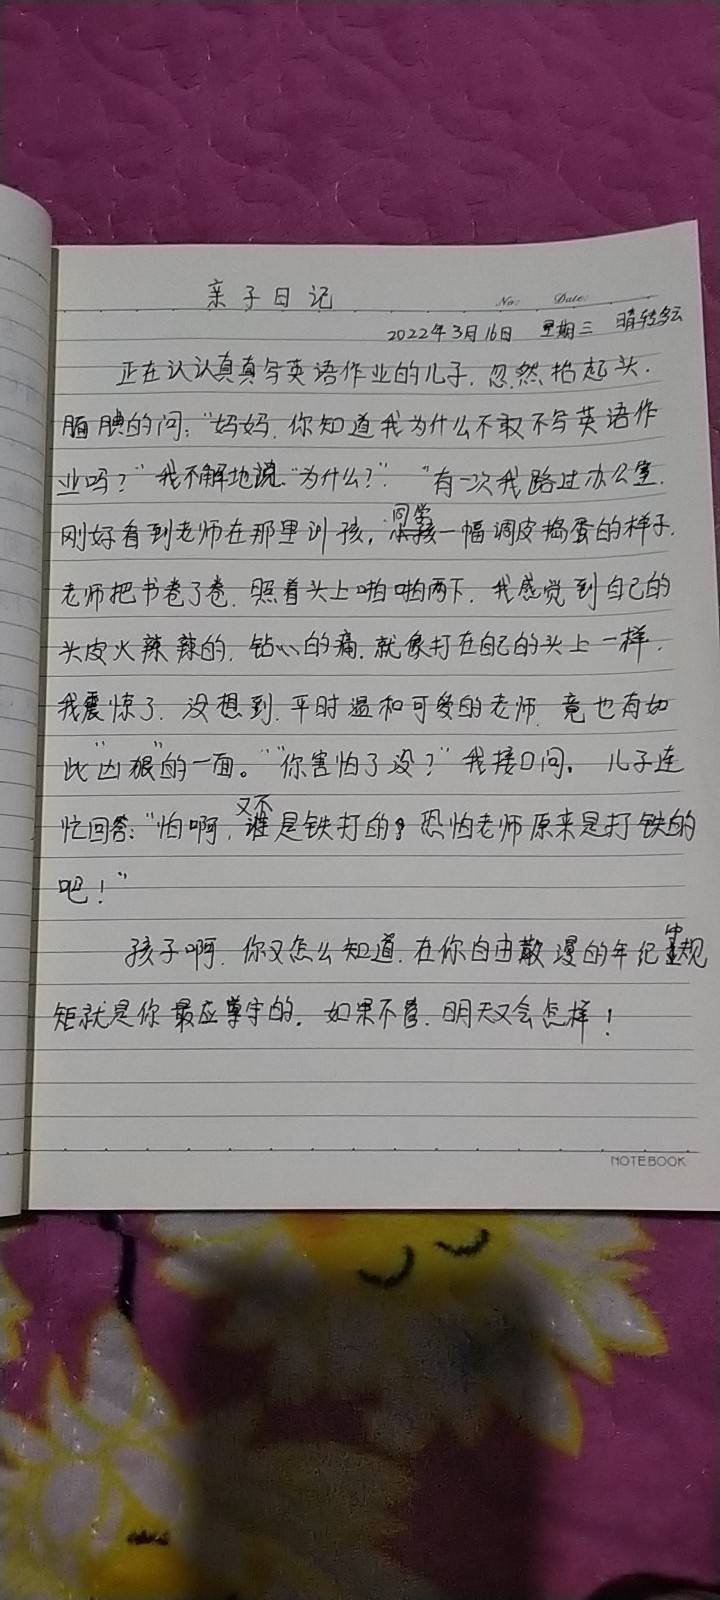 亲子日记
No: Date:
2022年3月16日 星期三 晴转多云
正在认认真真写英语作业的儿子,忽然抬起头,
腼腆的问:“妈妈,你知道我为什么不敢不写英语作
业吗?”我不解地说“为什么?”“有一次我路过办公室,
同学
刚好看到老师在那里训孩,小孩一幅调皮捣蛋的样子,
老师把书卷了卷,照着头上啪啪两下,我感觉到自己的
头皮火辣辣的,钻心的痛,就像打在自己的头上一样,
我震惊了,没想到,平时温和可爱的老师,竟也有如
此“凶狠”的一面。”“你害怕了没?”我接口问。儿子连
又不
忙回答:“怕啊,谁是铁打的,恐怕老师原来是打铁的
吧!”
孩子啊,你又怎么知道,在你自由散漫的年纪中规
矩就是你最应尊守的。如果不管,明天又会怎样!
NOTEBOOK